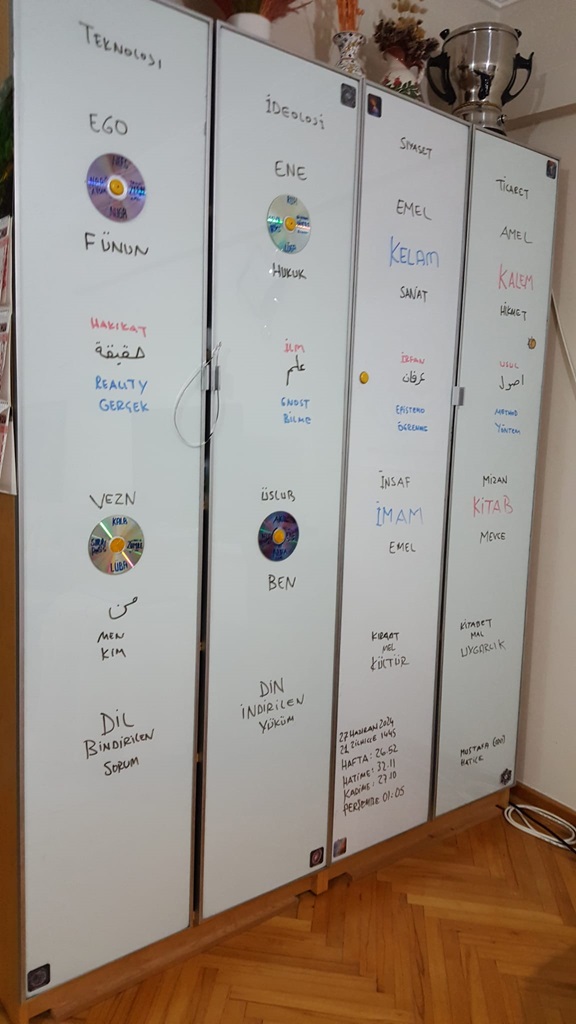 TEKNOLOJI
EGO
FÜNUN
HAKIKAT
حقيقة
REALITY
GERÇEK
VEZN
KALB
LUBB
من
MEN
KIM
DIL
BINDIRILEN
SORUM
İDEOLOJI
ENE
HUKUK
İLM
علم
GNOST
BILME
ÜSLUB
BEN
DIN
INDIRILEN
YÜKÜM
SIYASET
EMEL
KELAM
SANAT
IRFAN
عرفان
EPISTEMO
ÖĞRENME
İNSAF
İMAM
EMEL
KIRAAT
MEL
KÜLTÜR
27 HAZIRAN 2024
21 ZILHICCE 1445
HAFTA: 26.52
HATIME: 32.11
KADIME: 27.10
PERŞEMBE 01:05
TICARET
AMEL
KALEM
HIKMET
USUL
اصول
METHOD
YÖNTEM
MIZAN
KITAB
MEVCE
KITABET
MAL
UYGARLIK
HATICE